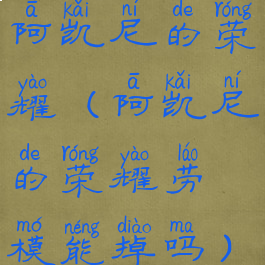 ā kǎi ní de róng
阿凯尼的荣
yào ā kǎi ní
耀（阿凯尼
de róng yào láo
的荣耀劳
mó néng diào ma
模能掉吗）